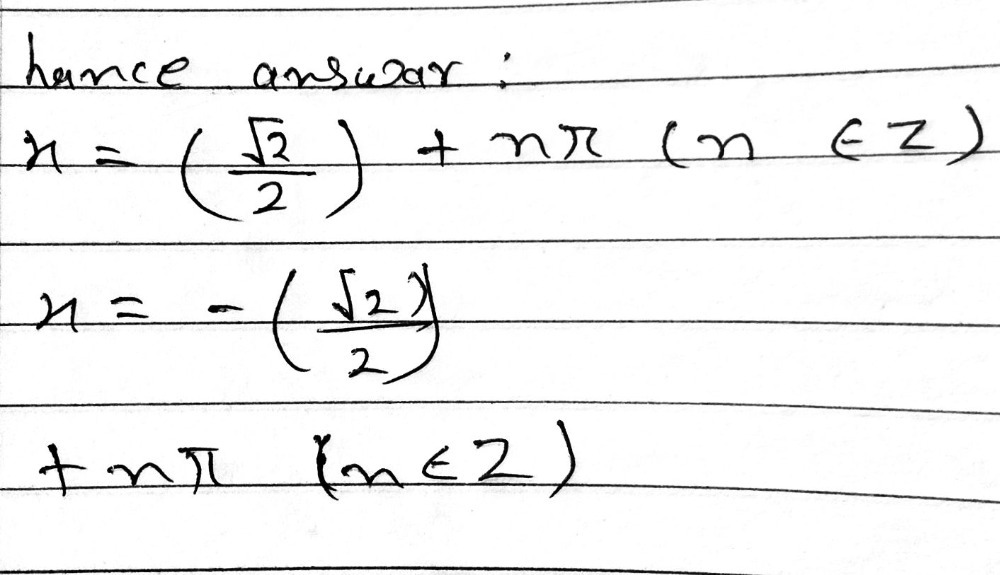 hence answar :
x = (√2/2) + nπ (n ∈ Z)
x = - (√2/2)
+ nπ (n ∈ Z)